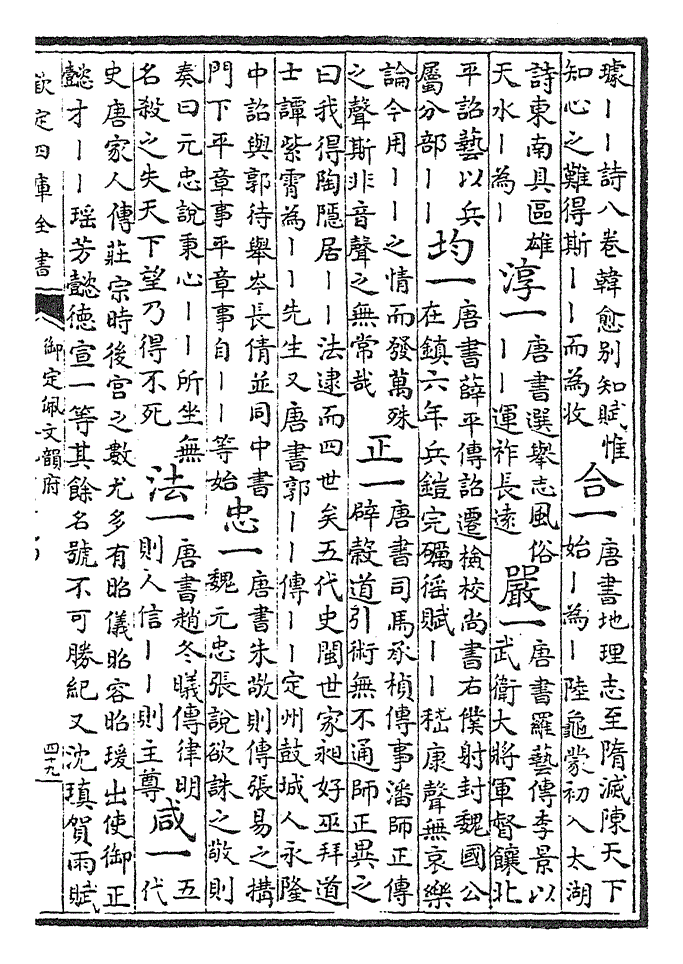 璩一一詩八卷韓愈别知賦惟
知心之難得斯一一而為收
合一
唐書地理志至隋滅陳天下
始一為一陸龜蒙初入太湖
詩東南具區雄
天水一為一
淳一
唐書選舉志風俗
一一運祚長遠
嚴一
唐書羅藝傳李景以
武衛大將軍督饟北
平詔藝以兵
屬分部一一
均一
唐書薛平傳詔遷檢校尚書右僕射封魏國公
在鎮六年兵鎧完礪徭賦一一嵇康聲無哀樂
論今用一一之情而發萬殊
之聲斯非音聲之無常哉
正一
唐書司馬承楨傳事潘師正傳
辟穀道引術無不通師正異之
曰我得陶隱居一一法逮而四世矣五代史閩世家昶好巫拜道
士譚紫霄為一一先生又唐書郭一一傳一一定州鼓城人永隆
中詔與郭待舉岑長倩並同中書
門下平章事平章事自一一等始
忠一
唐書朱敬則傳張易之搆
魏元忠張說欲誅之敬則
奏曰元忠說秉心一一所坐無
名殺之失天下望乃得不死
法一
唐書趙冬曦傳律明
則人信一一則主尊
咸一
五
代
史唐家人傳莊宗時後宮之數尤多有昭儀昭容昭瑗出使御正
懿才一一瑶芳懿德宣一等其餘名號不可勝紀又沈瑱賀雨賦
欽定四庫全書
御定佩文韻府
四十九